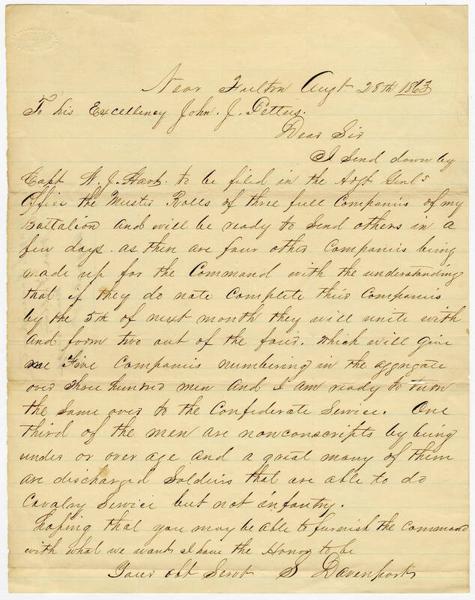 Near Fulton Augt 28th 1863
To his Excellency John. J. Pettus.
Dear Sir
I Send down by
Capt W. J. to be filed in the Adgt Genls
Office the Muster Rolls of three full Companies of my
battalion and will be ready to Send others in a
few days. as then are four other Companies being
made up for the Command with the understanding
that if they do note Complete their Companies
by the 5th of next month they will unite with
and form two out of the four. Which will give
me Five Companies numbering in the aggregate
over three hundred men and I am ready to turn
the Same over to the Confederate Service. One
third of the men are nonconscripts by being
under or over age and a great many of them
are discharged Soldiers that are able to do
Cavalry Service but not infantry.
hoping that you may be able to furnish the Command
with what we want I have the Honor to be
Your obt Servt S Davenport